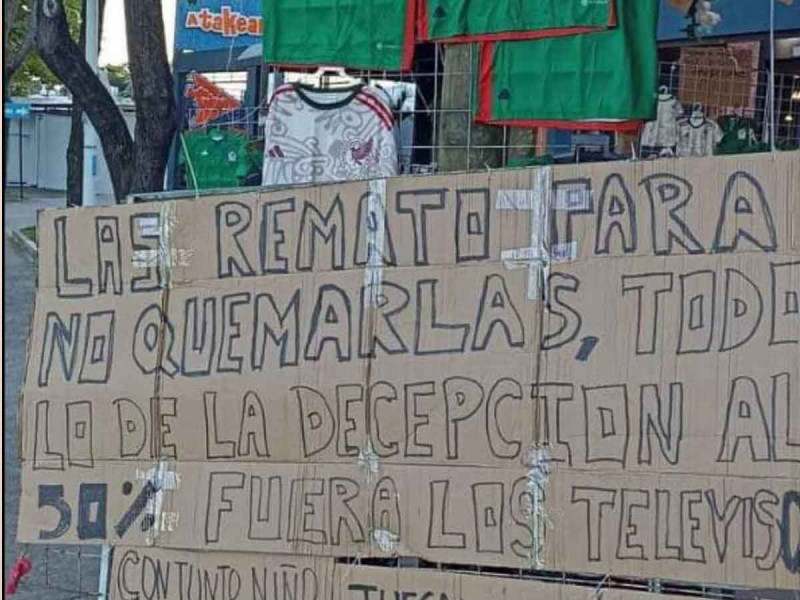 Atakear
LAS REMATO PARA
NO QUEMARLAS, TODO
LO DE LA DECEPCION AL
50% FUERA LOS TELEVISO
CONJUNTO NIÑO